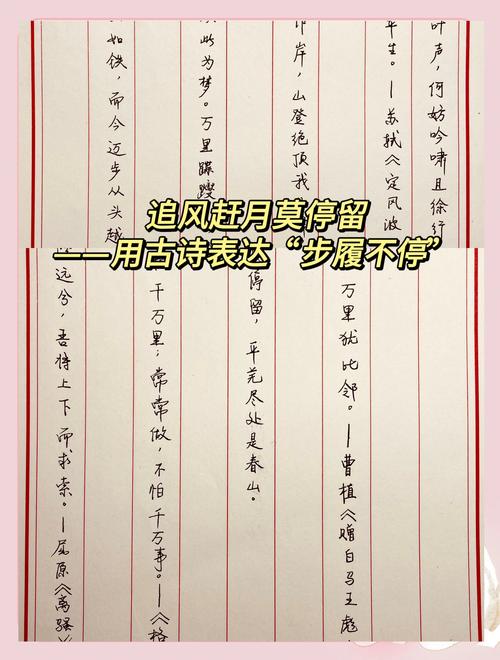 追风赶月莫停留
——用古诗表达“步履不停”
叶声，何妨吟啸且徐行
平生。—苏轼《定风波
岸，山登绝顶我
此为梦。万里蹀躞
如铁，而今迈步从头越
万里犹比邻。—曹植《赠白马王彪
停留，平芜尽处是春山。
千万里；常常做，不怕千万事。—《格
远兮，吾将上下而求索。—屈原《离骚》